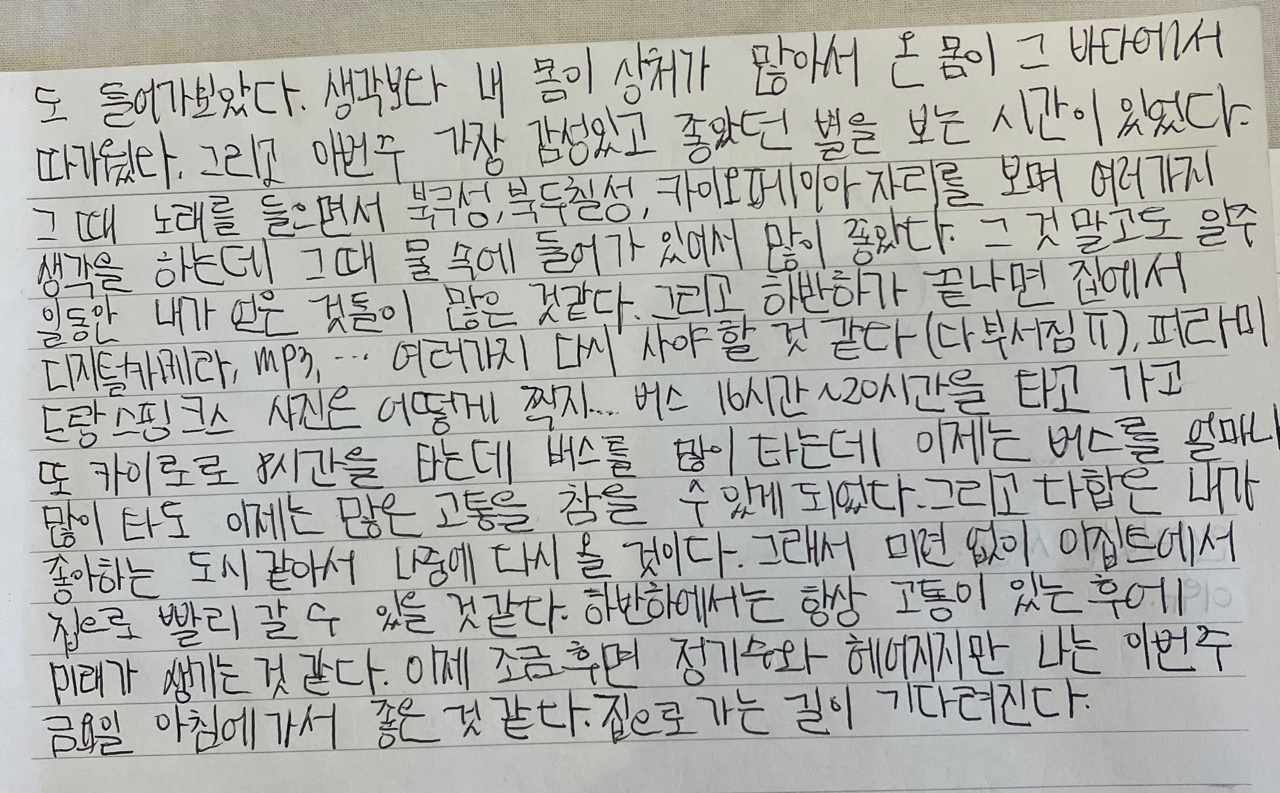 도 들어가보았다. 생각보다 내 몸이 상처가 많아서 온 몸이 그 바다에서
따가웠다. 그리고 이번주 가장 감성있고 좋았던 별을 보는 시간이 있었다.
그 때 노래를 들으면서 북극성, 북두칠성, 카이오페이아 자리를 보며 여러가지
생각을 하는데 그때 물 속에 들어가 있어서 많이 좋았다. 그 것 말고도 일주
일동안 내가 얻은 것들이 많은 것같다. 그리고 하반하가 끝나면 집에서
디지털카메라, mp3, ... 여러가지 다시 사야할 것 같다 (다 부서짐 ㅠ), 피라미
드랑 스핑크스 사진은 어떻게 찍지... 버스 16시간~20시간을 타고 가고
또 카이로로 8시간을 타는데 버스를 많이 타는데 이제는 버스를 얼마나
많이 타도 이제는 많은 고통을 참을 수 있게 되었다. 그리고 다합은 내가
좋아하는 도시 같아서 나중에 다시 올 것이다. 그래서 미련 없이 이집트에서
집으로 빨리 갈 수 있을 것 같다. 하반하에서는 항상 고통이 있는 후에
미래가 생기는 것 같다. 이제 조금 후면 정기수와 헤어지지만 나는 이번주
금요일 아침에 가서 좋은 것 같다. 집으로 가는 길이 기다려진다.